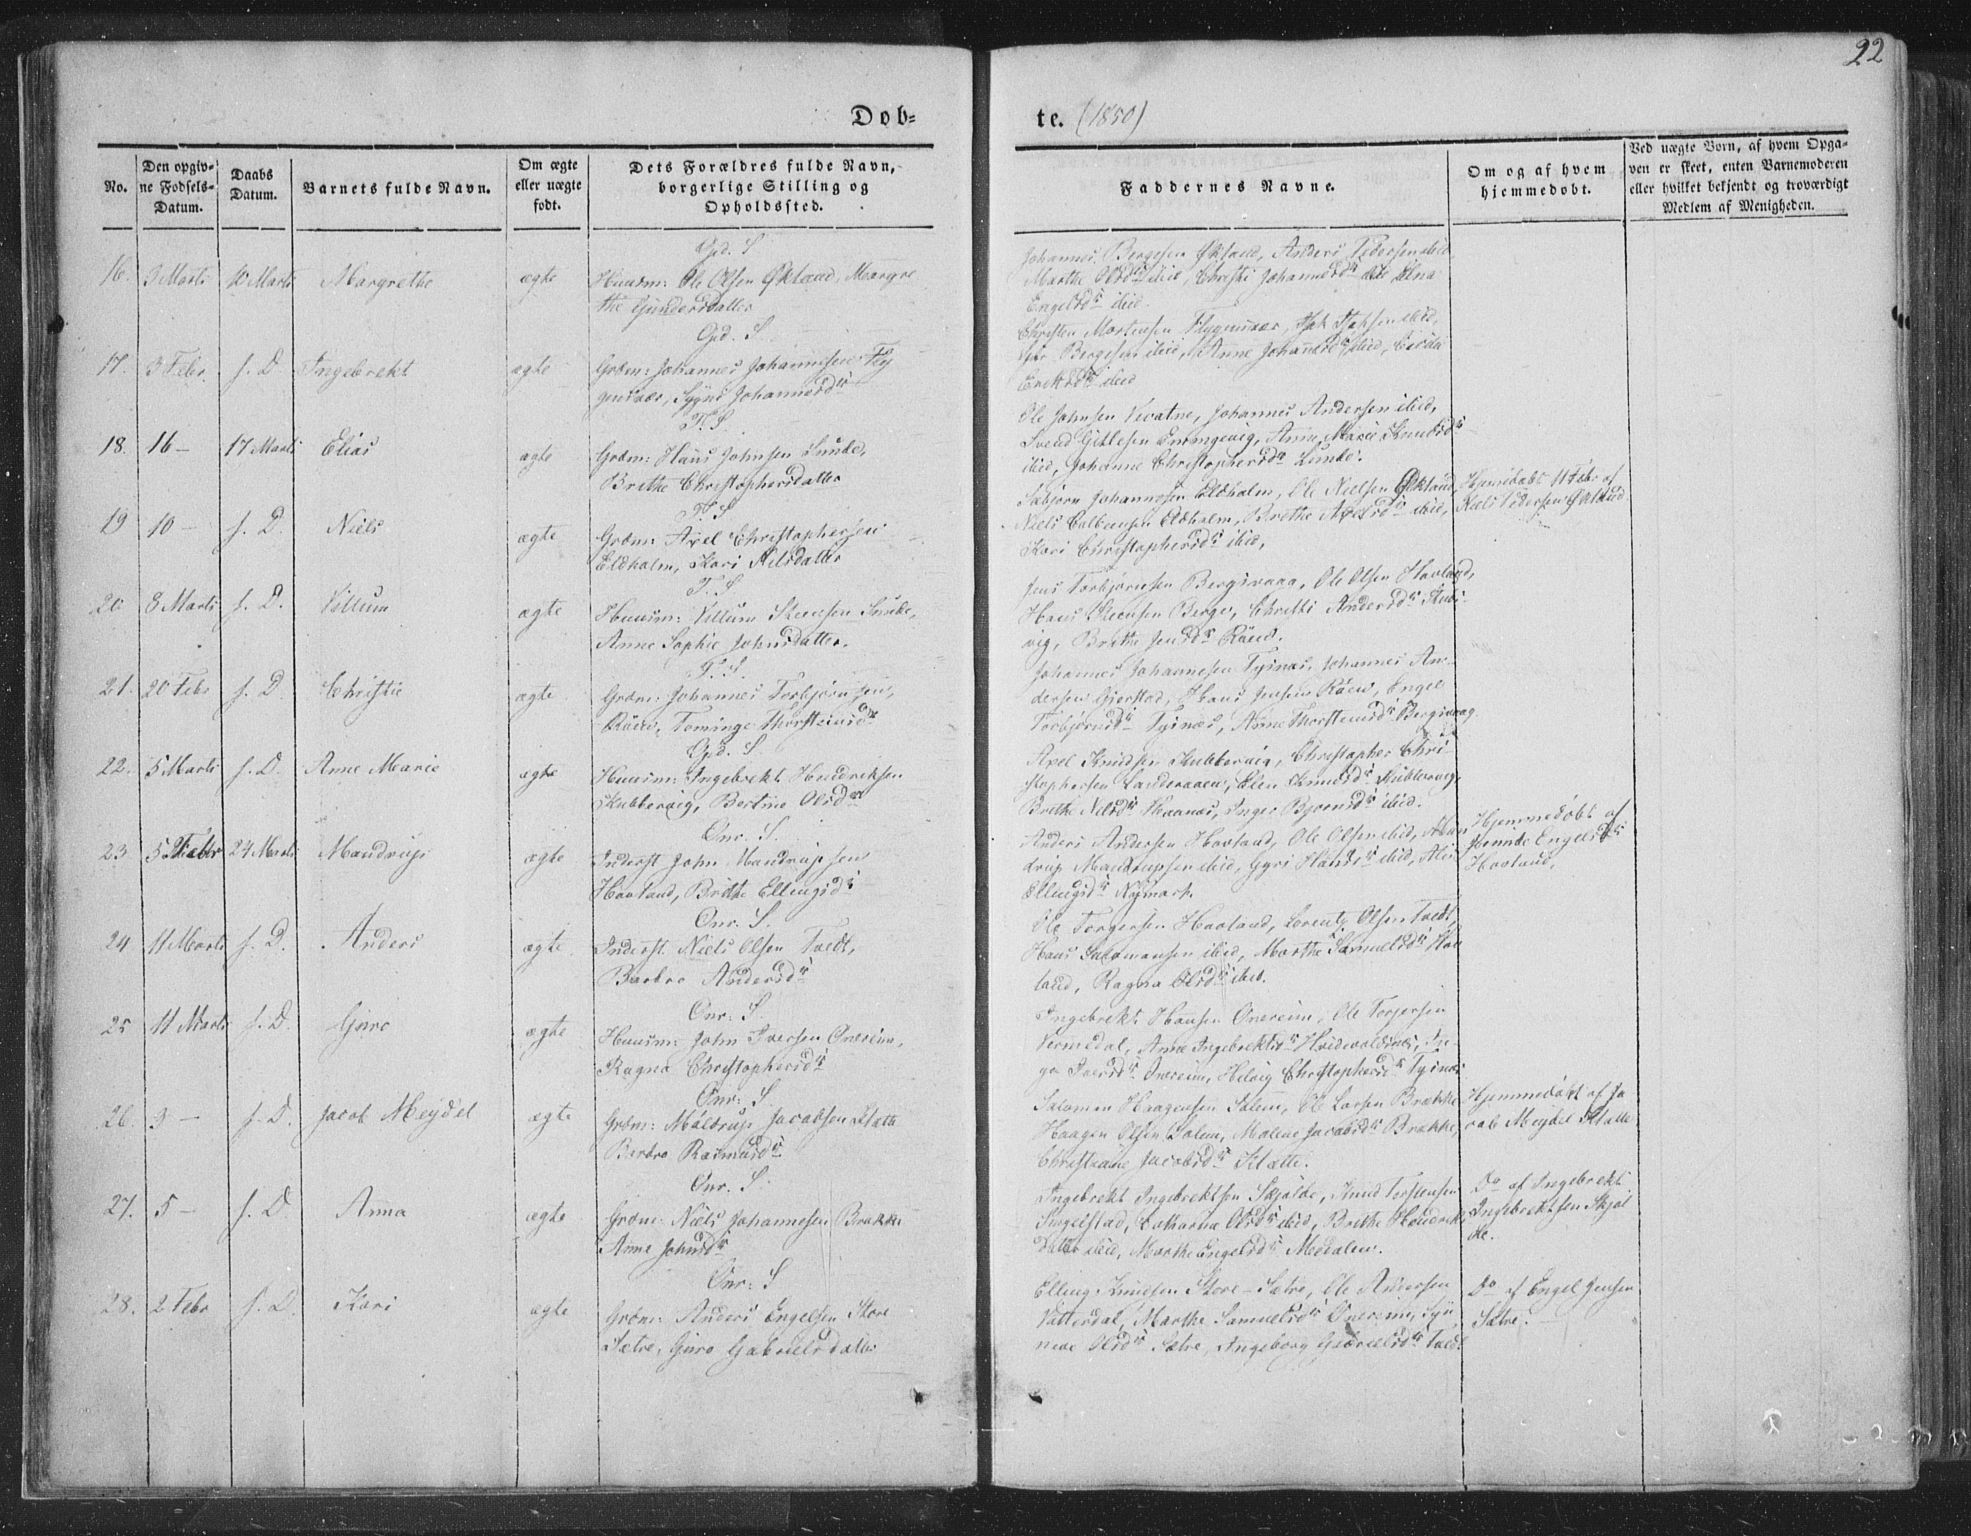 22
Døb=
te. (1850)
No.
Den opgiv-
ne Fødsels-
Datum.
Daabs
Datum.
Barnets fulde Navn.
Om ægte
eller uægte
født.
Dets Forældres fulde Navn,
borgerlige Stilling og
Opholdssted.
Faddernes Navne.
Om og af hvem
hjemmedøbt.
Ved uægte Born, af hvem Opga-
ven er skeet, enten Barnemoderen
eller hvilket bekjendt og troværdigt
Medlem af Menigheden.
Gpd. S
16. 3 Marti 10 Marti Margrethe ægte Huusm: Ole Olsen Økland, Margre
the Gundersdatter
Johannes Bergesen Økland, Anders Pedersen ibid
Marthe Olsdr ibid, Christi Johannesdr ibid Elna
Engelsdr ibid.
Gpd. S.
17. 3 Febr. s. D Ingebrekt ægte Grdm: Johannes Johannesen Fly
gensvær, Sygni Johannesdr
Christen Mortensen Flygensvær, Isak Isaksen ibid,
Bergesen ibid, Anne Johannesdr ibid,
Eriksdr ibid
T. S
18. 16 — 17 Marti Elias ægte Grdm: Hans Johnsen Lunde,
Brithe Christophersdatter
Ole Johnsen Vevatne, Johannes Andersen ibid,
Svend Gitlesen Emmgevig, Anne Marie Knudsdr
ibid, Johanne Christophersdr Lunde.
T. S
19 10 — s. D. Niels ægte Grdm: Axel Christophersen
Eldholm, Kari Nilsdatter
Johannesen Eldholm, Ole Nielsen Økland,
Niels Colbensen Eldholm, Brethe Axelsdr ibid,
Kari Christophersdr ibid,
Hjemdøbt 11 Febr af
Niels Pedersen Økland
T. S
20 8 Marti s. D. Villum ægte Huusm: Villum Steensen Lunde,
Anne Sophie Johnsdatter.
Jens Torbjørnsen Bergsvaag, Ole Olsen Havland,
Hans Steensen Berge, Christi Andersdr Kubs-
vig, Brithe Jensdr Røen.
T. S.
21. 20 Febr s. D. Christie ægte Grdm: Johannes Torbjørnsen,
Røen, Tominge Thorsteinsdr
Johannes Johannesen Tysnæs, Johannes An-
dersen Gjerstad, Hans Jensen Røen, Engel
Torbjørnsdr Tysnæs, Anne Thorsteinsdr Bergsvaag
Gpd. S
22. 5 Marti s. D. Anne Marie ægte Huusm: Ingebrekt Hendriksen
Skubbervig, Bertine Olsdr
Axel Knudsen Skubbervig, Christopher Chri-
stophersen Landeraaen, Elen Knudsdr Skubbervig,
Brethe Nilsdr Skaanæs, Inger Bjørnsdr ibid.
Onr. S.
23 5 Febr 24 Marti Mandrup ægte Inderst John Mandrupsen
Hovland, Brithe Ellingsdr
Anders Andersen Hovland, Ole Olsen ibid, Man
drup Mandrupsen ibid, Gyri Hansdr ibid,
Ellingsdr Nymark.
Hjemmedøbt af
Engelsdr
Hovland.
Onr. S.
24 11 Marti s. D. Anders ægte Inderst Niels Olsen Tvedt,
Barbro Andersdr
Ole Torgersen Hovland, Lorentz Olsen Tvedt,
Hans Salomonsen ibid, Marthe Samuelsdr Hov
land, Ragna Olsdr ibid.
Onr. S.
25 11 Marti s. D. Guro ægte Huusm: John Iversen Onereim,
Ragna Christophersdr
Ingebrekt Hansen Onereim, Ole Torgersen
Vermedal, Anne Ingebrektsdr Hvidevoldnæs, In-
ga Iversdr Onereim, Helvig Christophersdr Tysnæs
Onr. S.
26. 3 — s. D. Jacob Meydel ægte Grdm: Moldrup Jacobsen Klatte
Barbro Rasmusdr
Salomon Haagensen Solem, Ole Larsen Brække
Haagen Olsen Solem, Malene Jacobsdr Brække,
Christiane Jacobsdr Klætte.
Hjemmedøbt af Ja
cob Meydel Klatte
Onr. S.
27. 5 — s. D. Anna ægte Grdm: Niels Johannesen Brække
Anne Johnsdr
Ingebrekt Ingebrektsen Skjolde, Knud Torstensen
Singelstad, Catharina Olsdr ibid, Brithe Hendriks
datter ibid, Marthe Engelsdr Medalen.
Do af Ingebrekt
Ingebrektsen Skjol
de.
Onr. S
28. 2 Febr s. D. Kari ægte Grdm: Anders Engelsen Store
Sætre, Guro Gabrielsdatter
Elling Knudsen Store-Sætre, Ole Andersen
Vatterdal, Marthe Samuelsdr Onereim, Syn
neve Olsdr Sætre, Ingeborg Gabrielsdr Tvedt
Do af Engel Jensen
Sætre.